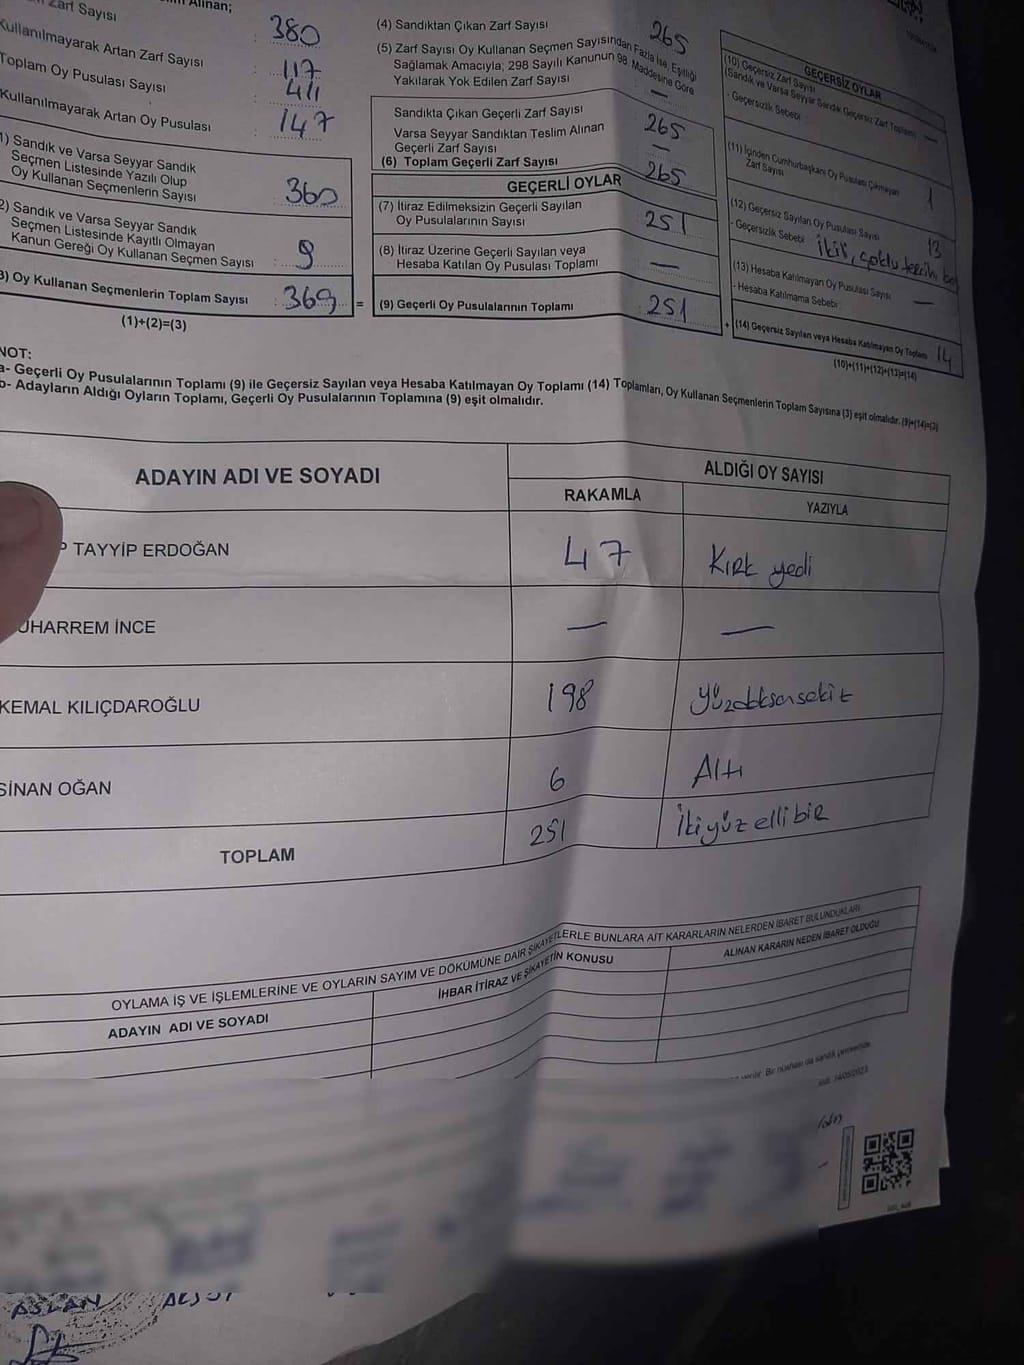 Zarf Sayısı
380
Kullanılmayarak Artan Zarf Sayısı
117
Toplam Oy Pusulası Sayısı
411
Kullanılmayarak Artan Oy Pusulası
147
1) Sandık ve Varsa Seyyar Sandık
Seçmen Listesinde Yazılı Olup
Oy Kullanan Seçmenlerin Sayısı
360
2) Sandık ve Varsa Seyyar Sandık
Seçmen Listesinde Kayıtlı Olmayan
Kanun Gereği Oy Kullanan Seçmen Sayısı
9
3) Oy Kullanan Seçmenlerin Toplam Sayısı : 369 =
(1)+(2)=(3)
Alınan;
(4) Sandıktan Çıkan Zarf Sayısı
265
(5) Zarf Sayısı Oy Kullanan Seçmen Sayısından Fazla İse, Eşitliği
Sağlamak Amacıyla; 298 Sayılı Kanunun 98. Maddesine Göre
Yakılarak Yok Edilen Zarf Sayısı
—
Sandıkta Çıkan Geçerli Zarf Sayısı
265
Varsa Seyyar Sandıktan Teslim Alınan
Geçerli Zarf Sayısı
—
(6) Toplam Geçerli Zarf Sayısı
265
GEÇERLİ OYLAR
(7) İtiraz Edilmeksizin Geçerli Sayılan
Oy Pusulalarının Sayısı
251
(8) İtiraz Üzerine Geçerli Sayılan veya
Hesaba Katılan Oy Pusulası Toplamı
—
(9) Geçerli Oy Pusulalarının Toplamı : 251 +
GEÇERSİZ OYLAR
(10) Geçersiz Zarf Sayısı
(Sandık ve Varsa Seyyar Sandık Geçersiz Zarf Toplamı)
- Geçersizlik Sebebi :
(11) İçinden Cumhurbaşkanı Oy Pusulası Çıkmayan
Zarf Sayısı
1
(12) Geçersiz Sayılan Oy Pusulası Sayısı
13
- Geçersizlik Sebebi :
(13) Hesaba Katılmayan Oy Pusulası Sayısı
—
- Hesaba Katılmama Sebebi :
(14) Geçersiz Sayılan veya Hesaba Katılmayan Oy Toplamı 14
(10)+(11)+(12)+(13)=(14)
NOT:
a- Geçerli Oy Pusulalarının Toplamı (9) ile Geçersiz Sayılan veya Hesaba Katılmayan Oy Toplamı (14) Toplamları, Oy Kullanan Seçmenlerin Toplam Sayısına (3) eşit olmalıdır. (9)+(14)=(3)
b- Adayların Aldığı Oyların Toplamı, Geçerli Oy Pusulalarının Toplamına (9) eşit olmalıdır.
ADAYIN ADI VE SOYADI
ALDIĞI OY SAYISI
RAKAMLA
YAZIYLA
P TAYYİP ERDOĞAN 47 Kırk yedi
UHARREM İNCE — —
KEMAL KILIÇDAROĞLU 198 Yüzdoksansekiz
SİNAN OĞAN 6 Altı
TOPLAM 251 İkiyüz ellibir
OYLAMA İŞ VE İŞLEMLERİNE VE OYLARIN SAYIM VE DÖKÜMÜNE DAİR ŞİKAYETLERLE BUNLARA AİT KARARLARIN NELERDEN İBARET BULUNDUKLARI
ADAYIN ADI VE SOYADI
İHBAR İTİRAZ VE ŞİKAYETİN KONUSU
ALINAN KARARIN NEDEN İBARET OLDUĞU
Bir nüshası da sandık çevresinde
14/05/2023
ASLAN